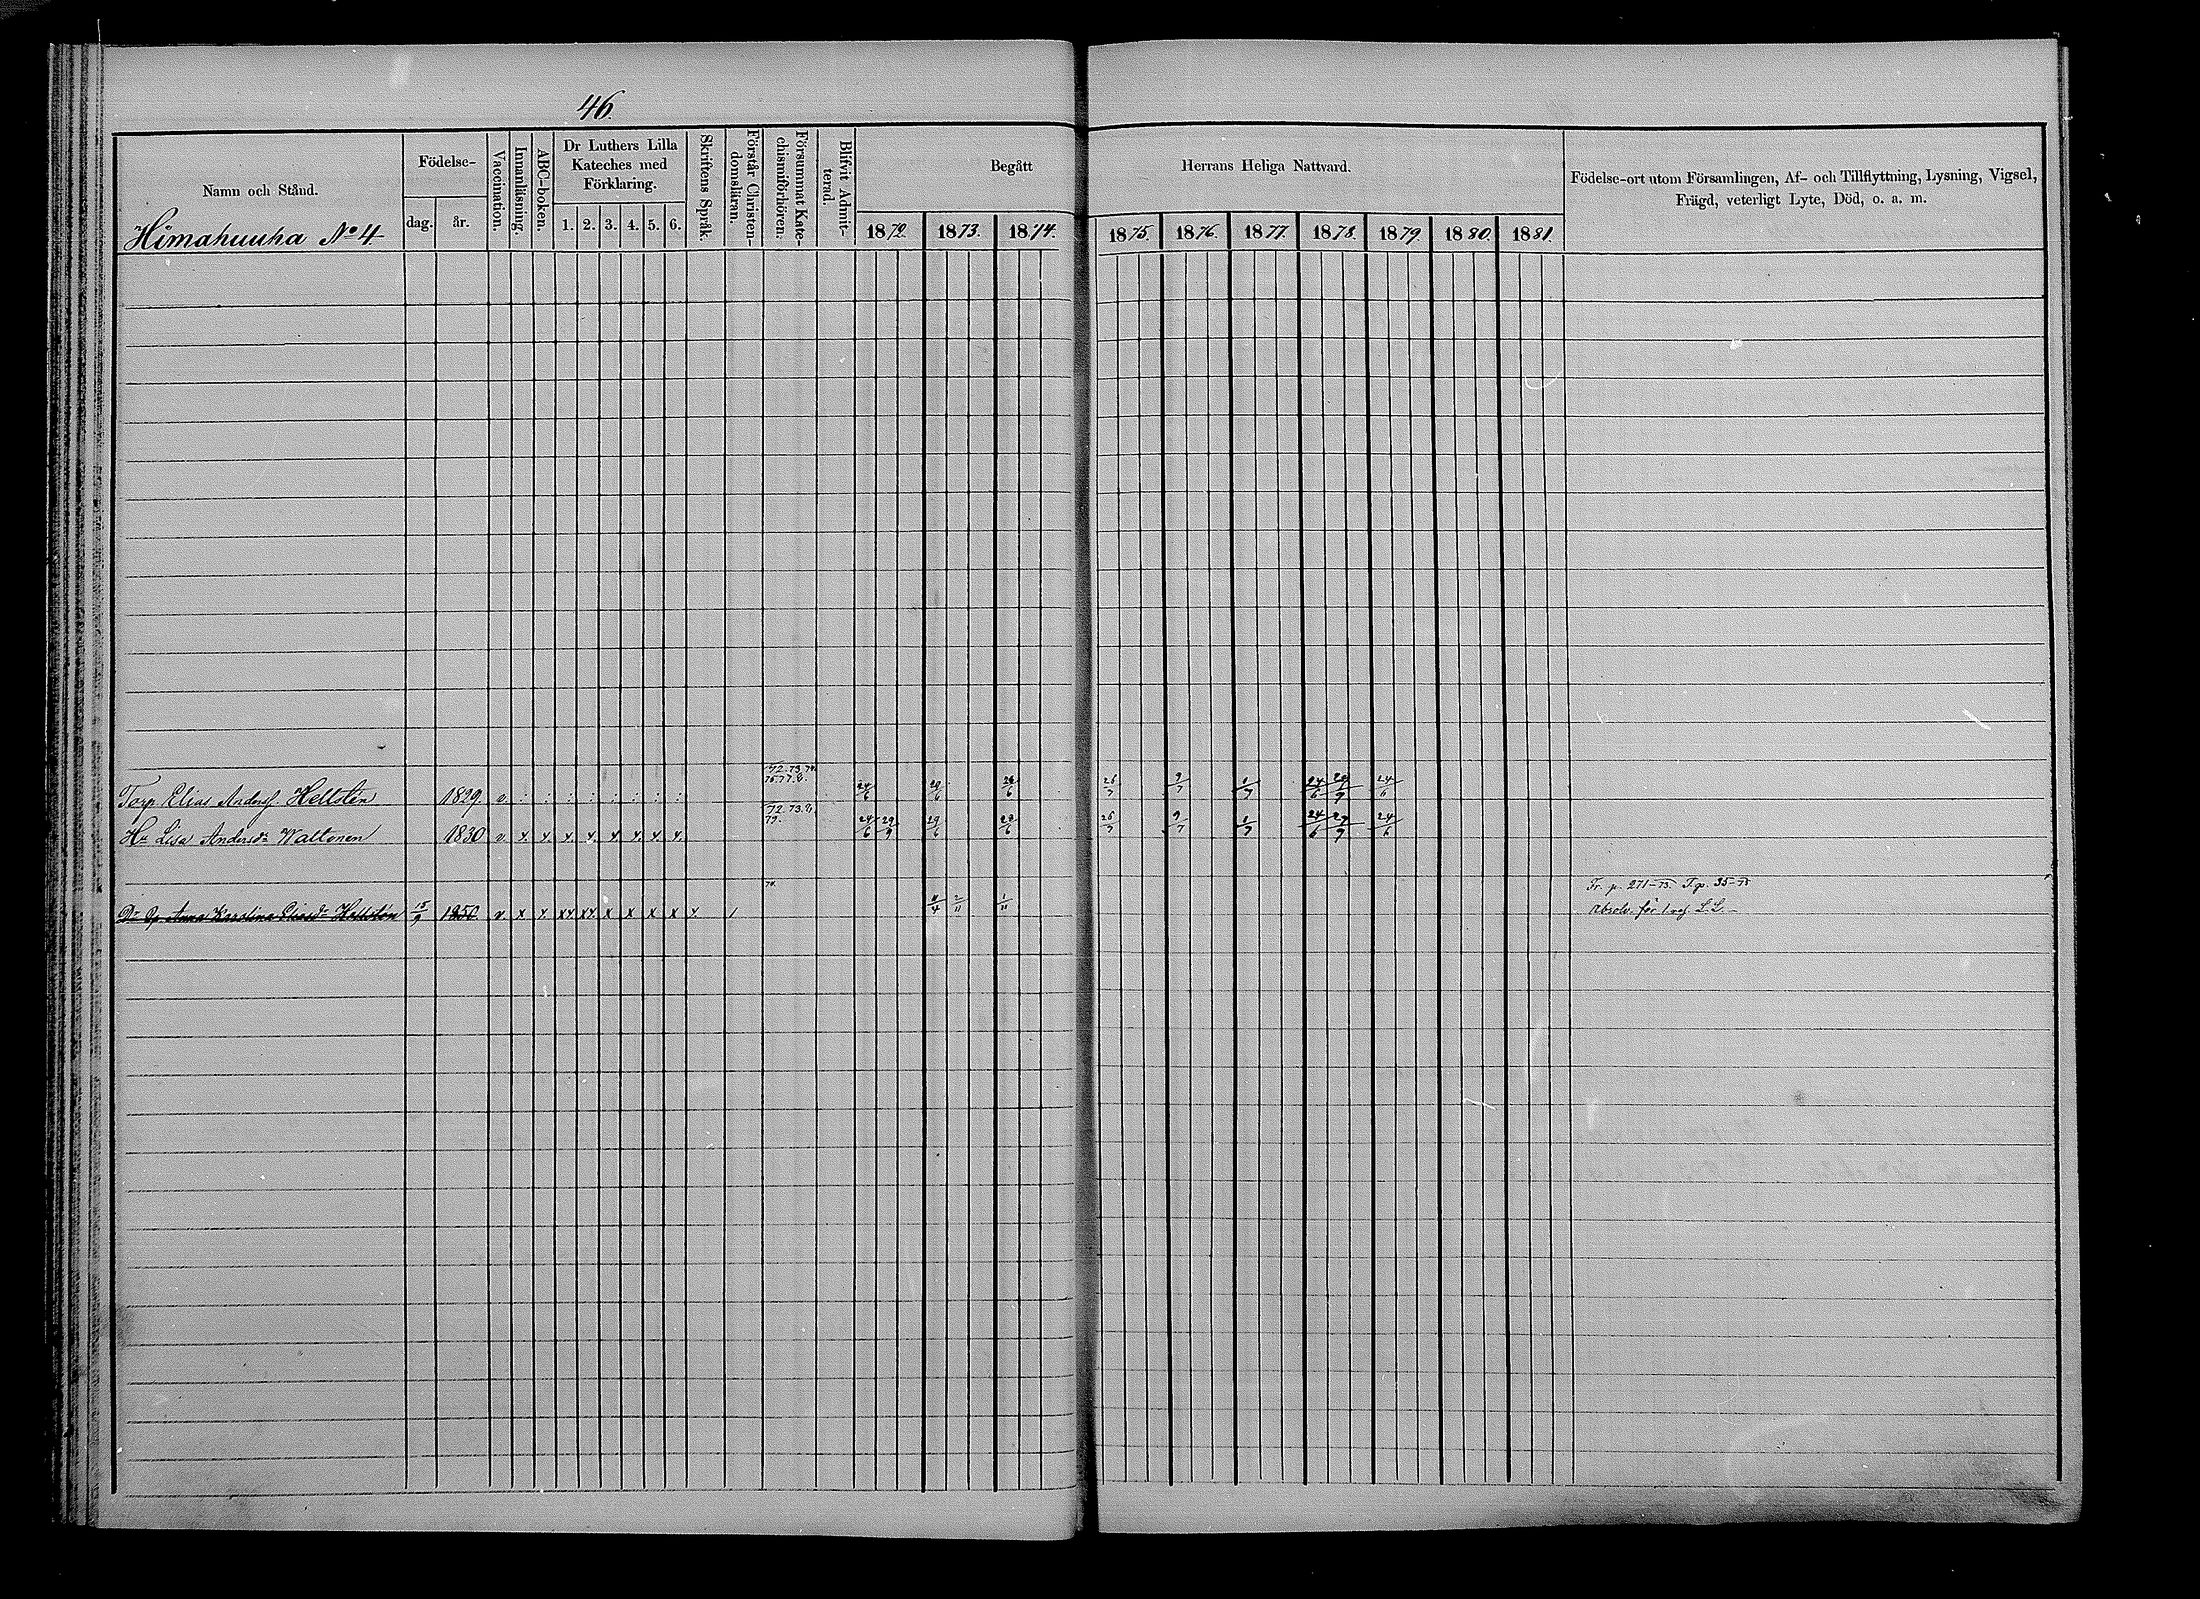 46.
Namn och Stånd.
Himahuuha No 4
Födelse-
dag. år.
Vaccination.
Innanläsning.
ABC-boken.
Dr Luthers Lilla
Kateches med
Förklaring.
1. 2. 3. 4. 5. 6.
Skriftens Språk.
Förstår Christen-
domsläran.
Försummat Kate-
chismiförhören.
Blifvit Admit-
terad.
Begått Herrans Heliga Nattvard.
1872. 1873. 1874. 1875. 1876. 1877. 1878. 1879. 1880. 1881.
Födelse-ort utom Församlingen, Af- och Tillflyttning, Lysning, Vigsel,
Frägd, veterligt Lyte, Död, o. a. m.
72. 73. 74.
Torp. Elias Andersf. Hellstén 1829. v. : : : : : : : : 24/6 29/6 28/6 26/7 9/7 1/7 24/6 29/9 24/6
72. 73.
79.
Hu Lisa Andersdr Waltonen 1830 v. x. x. x. x. x. x. x. x. 24/6 29/9 29/6 28/6 26/7 9/7 1/7 24/6 29/9 24/6
74.
Fr. p. 271-73. T. p. 35-75
Dr Op. Anna Karolina Eliasdr Hellstén 15/9 1850. v x x xx xx x x x x x / 2/11 1/11
Absolv. för L.L.